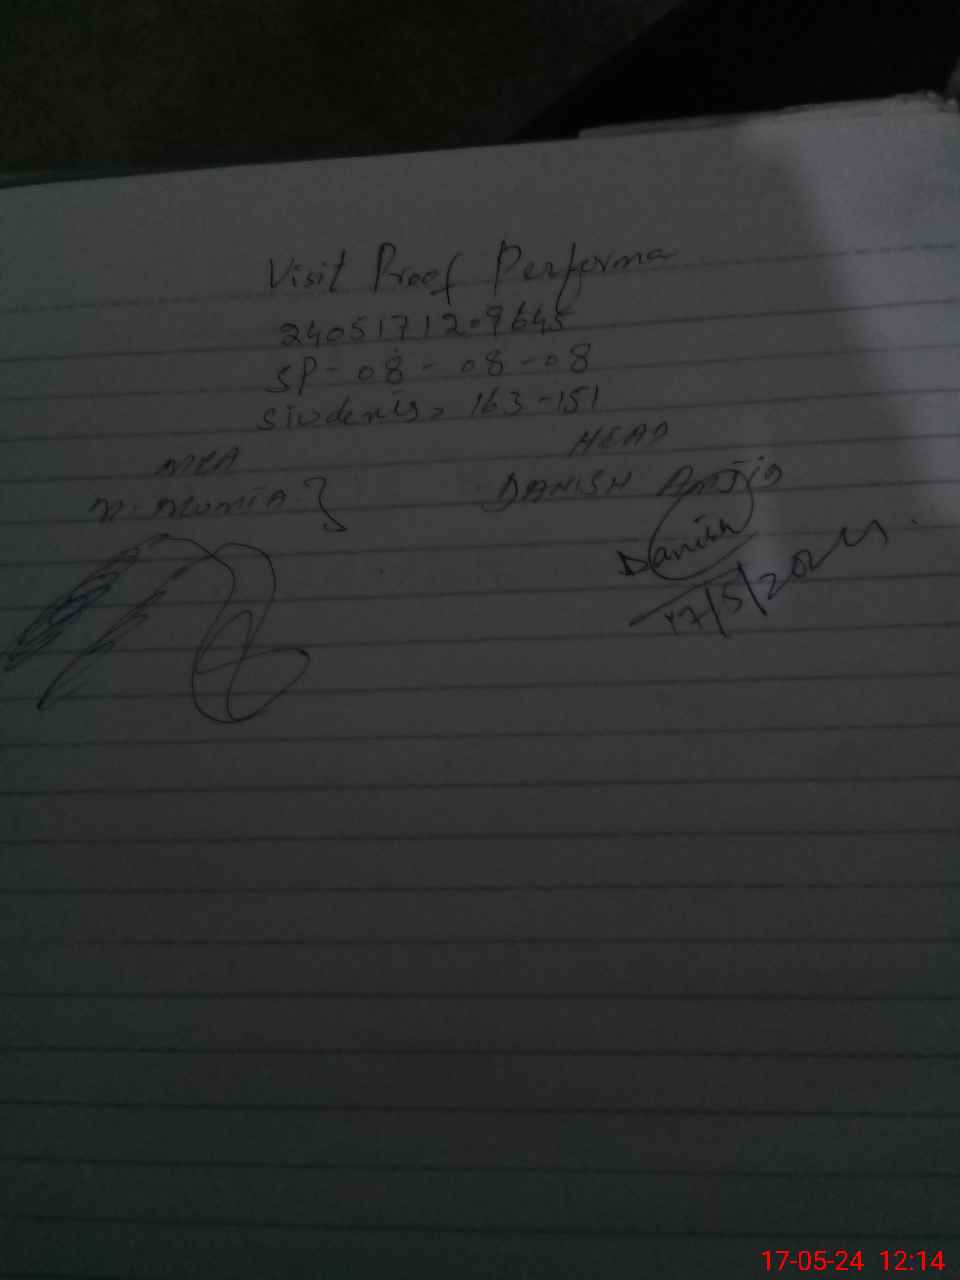 Visit Proof Performa
2405171209645
SP-08-08-08
Students = 163-151
MEA
HEAD
DANISH Amjid
Danish
17/5/2024
17-05-24 12:14